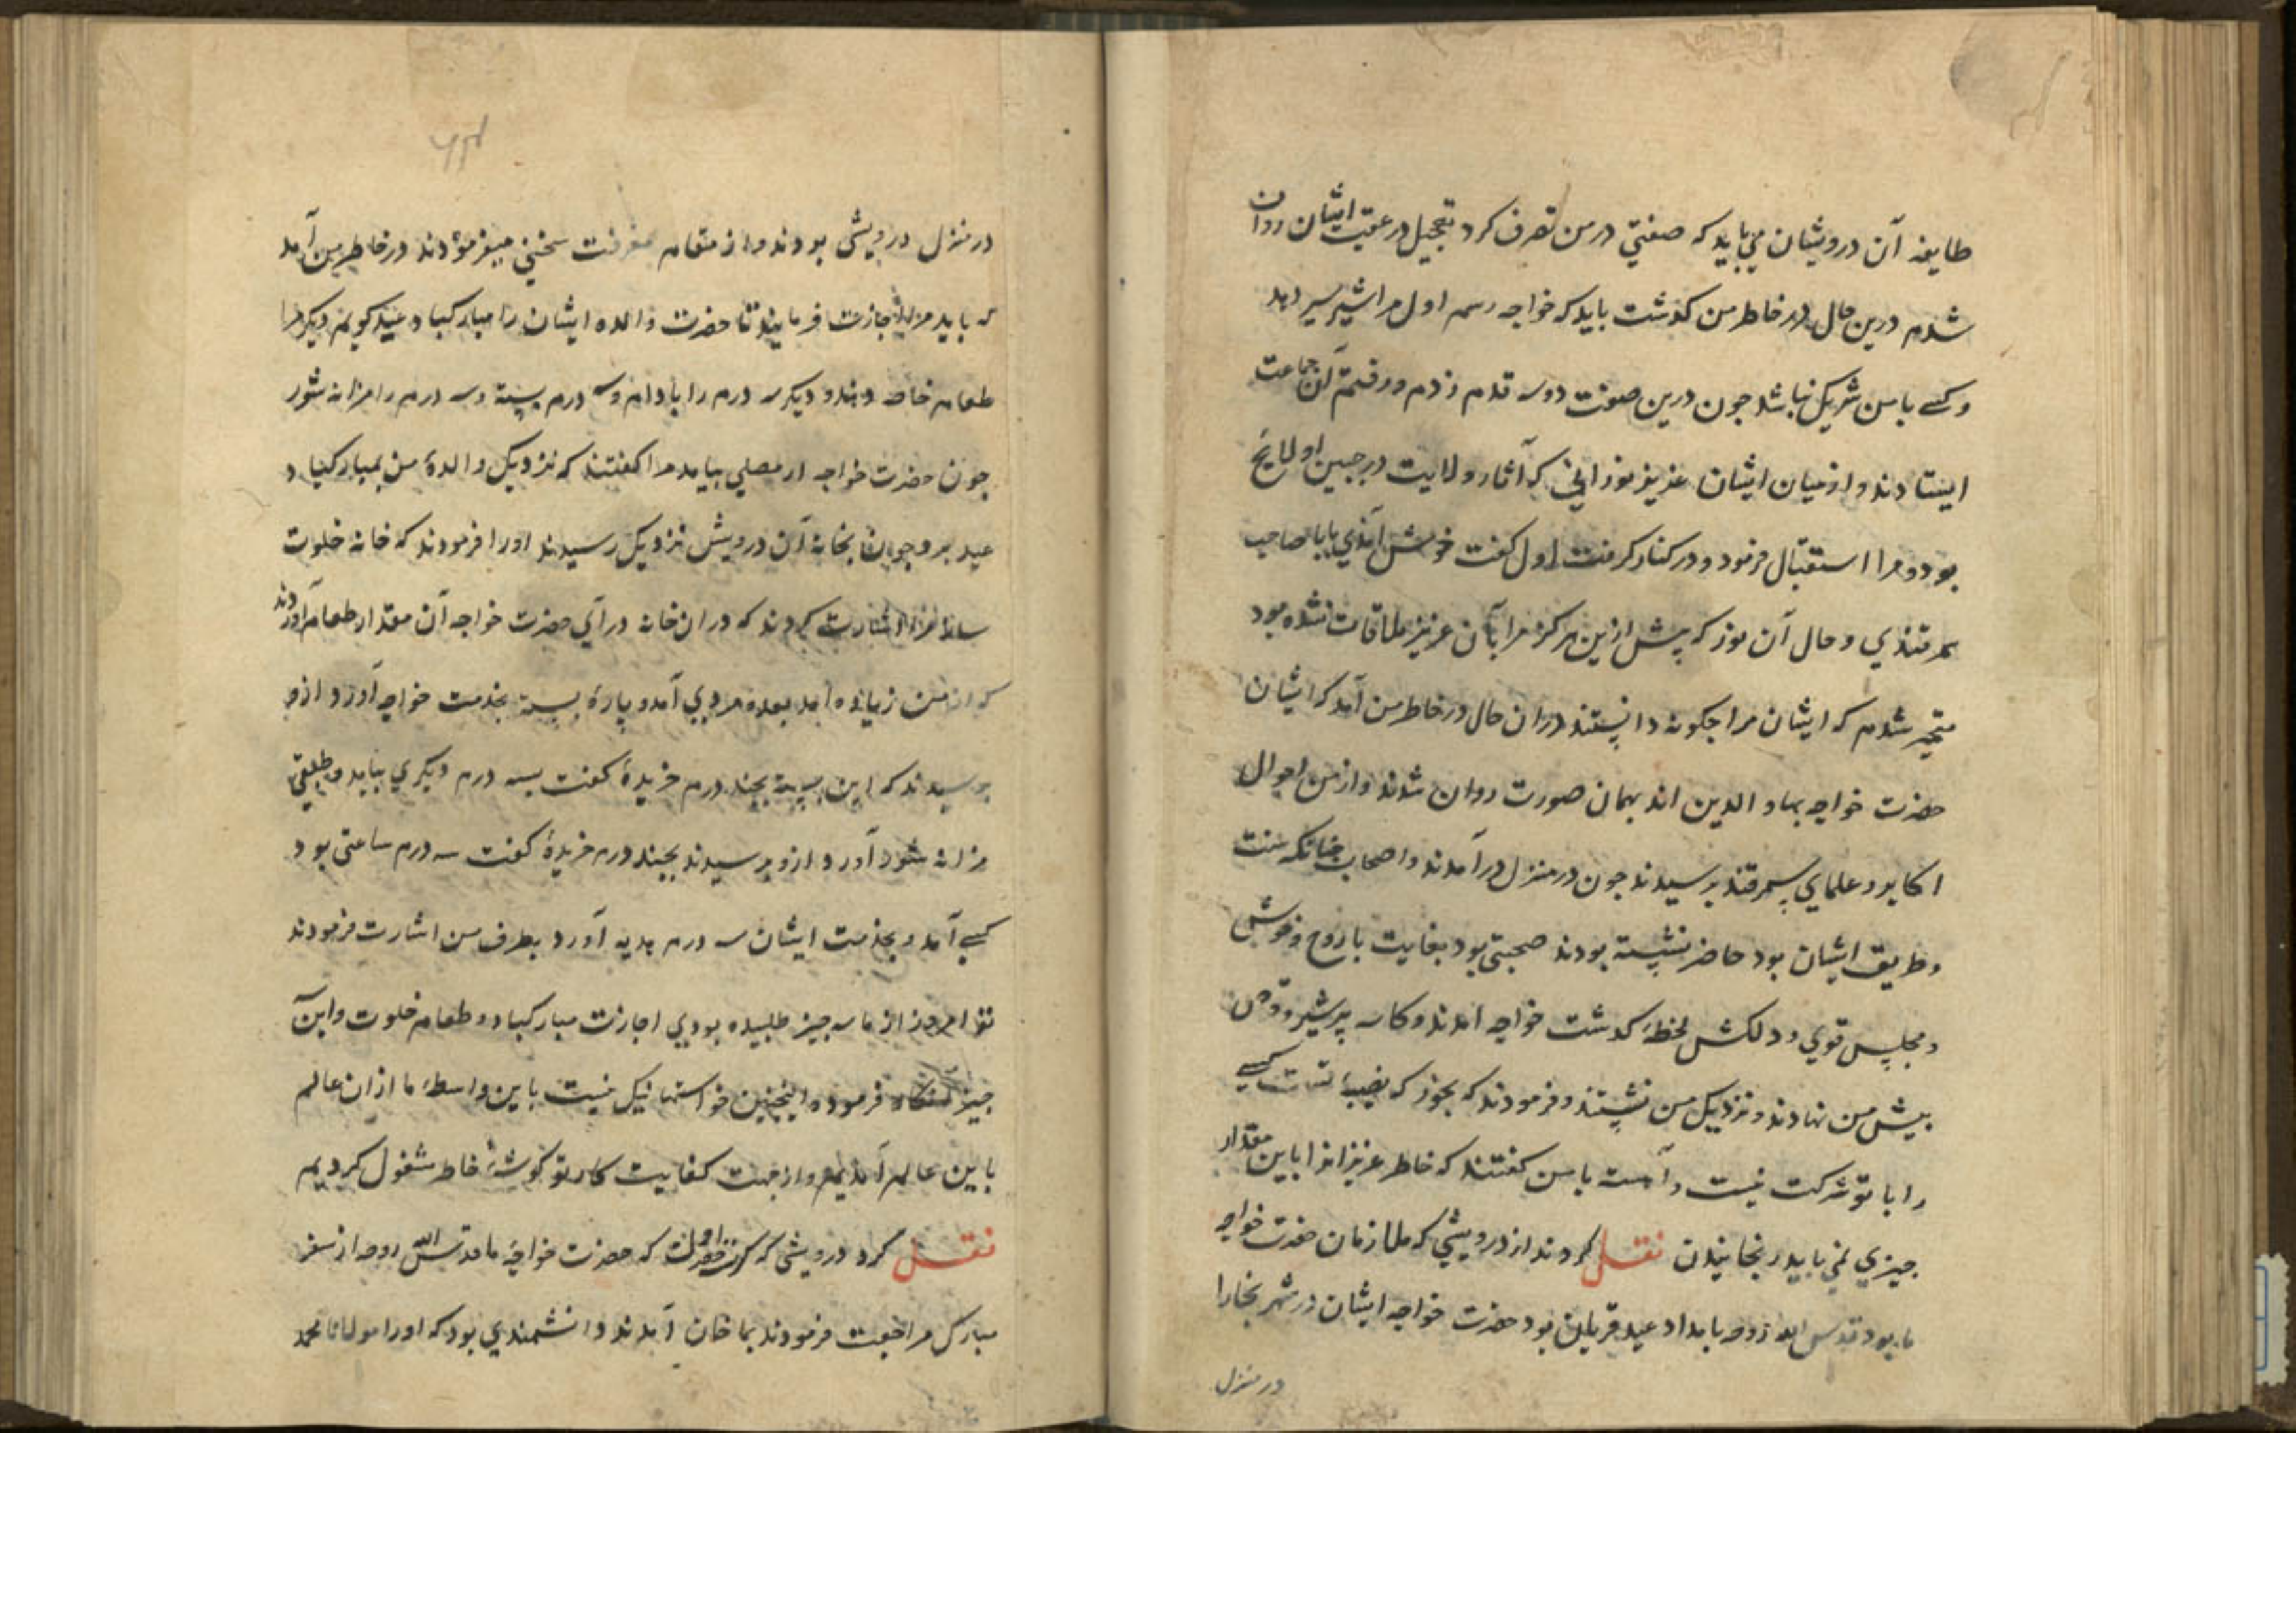 طایفه آن درویشان می باید که صفتی در من تصرف کرد بتعجیل در عقب ایشان روان
شدم درین حال در خاطر من گذشت باید که خواجه رسم اول مرا شیر سیر دهد
و کسی با من شریک نباشد چون درین صفت دو سه قدم زدم و رفتم آن جماعت
ایستادند و از میان ایشان عزیز نورانی که آثار ولایت در جبین او لایح
بود و مرا استقبال فرمود و در کنار گرفت اول گفت خوش آمدی بابا صاحب
سمرقندی و حال آن بود که پیش ازین هرگز مرا با آن عزیز ملاقات نشده بود
متحیر شدم که ایشان مرا چگونه دانستند در ان حال در خاطر من آمد که ایشان
حضرت خواجه بهاو الدین اند بهمان صورت روان شدند و از من احوال
اکابر و علمای سمرقند پرسیدند چون در منزل در آمدند و اصحاب چنانکه سنت
و طریق ایشان بود حاضر نشسته بودند صحبتی بود بغایت با روح و خوش
و مجلس قوی و دلکش لحظهٔ گذشت خواجه آمدند و کاسه پر شیر و قرص
پیش من نهادند و نزدیک من نشستند و فرمودند که بخور که نصیبهٔ تست کسی
را با تو شرکت نیست و آهسته با من گفتند که خاطر عزیزانرا باین مقدار
چیزی نمی باید رنجانیدن نقل کردند از درویشی که ملازمان حضرت خواجه
ما بود قدس الله روحه بامداد عید قربان بود حضرت خواجه ایشان در شهر بخارا
در منزل
در منزل درویشی بودند و از مقام معرفت سخنی میفرمودند در خاطر من آمد
که باید مرا اجازت فرمایند تا حضرت والده ایشان را مبارکباد عید گویم دیگر مرا
طعام خاصه دهند و دیگر سه درم را بادام و سه درم پسته و سه درم را مزانه شور
چون حضرت خواجه از مصلی بیامد مرا گفتند که نزدیک والدهٔ من بمبارکباد
عید برو چون بخانه آن درویش نزدیک رسیدند اورا فرمودند که خانه خلوت
ساز مرا اشارت کردند که در ان خانه در آی حضرت خواجه آن مقدار طعام آوردند
که از من زیاده آمد بعده مردی آمد و پارهٔ پسته بخدمت خواجه آورد ازو
پرسیدند که این پسته بچند درم خریدهٔ گفت بسه درم دیگری بیامد و طبقی
مزانه شور آورد ازو پرسیدند بچند درم خریدهٔ گفت سه درم ساعتی بود
کسی آمد و بخدمت ایشان سه درم هدیه آورد بطرف من اشارت فرمودند
تو امروز از ما سه چیز طلبیده بودی اجازت مبارکباد و طعام خلوت و این
چیز آنگاه فرمودند اینچنین خواستها نیک نیست باین واسطهٔ ما از ان عالم
باین عالم آمدیم و از جهت کفایت کار تو گوشهٔ خاطر مشغول کردیم
نقل کرد درویشی که کرت اول که حضرت خواجهٔ ما قدس الله روحه از سفر
مبارک مراجعت فرمودند بماخان آمدند دانشمندی بود که اورا مولانا محمد